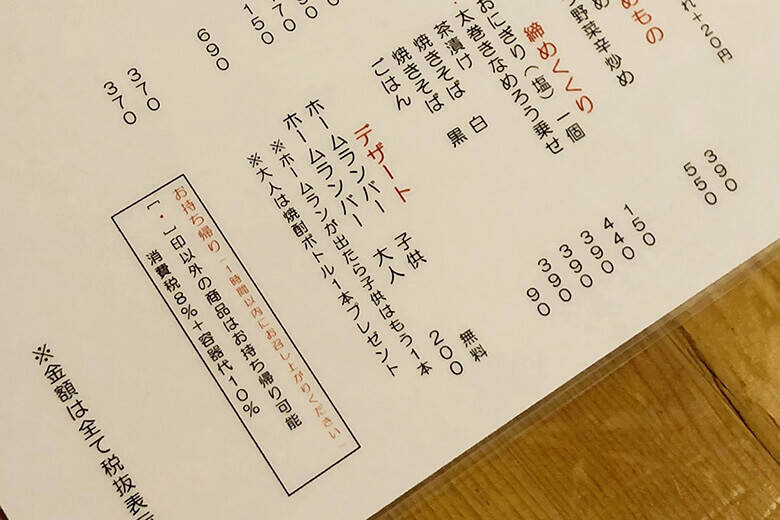 れ+20円
めもの
め 390
野菜辛炒め 550
締めくくり
おにぎり(塩)一個 150
・太巻きなめろう乗せ 440
茶漬け 390
焼きそば 白 390
焼きそば 黒 390
ごはん 90
デザート
ホームランバー 子供 無料
ホームランバー 大人 200
※ホームランが出たら子供はもう1本
※大人は焼酎ボトル1本プレゼント
150
690
370
370
お持ち帰り「1時間以内にお召し上がりください」
[・]印以外の商品はお持ち帰り可能
消費税8%+容器代10%
※金額は全て税抜表示